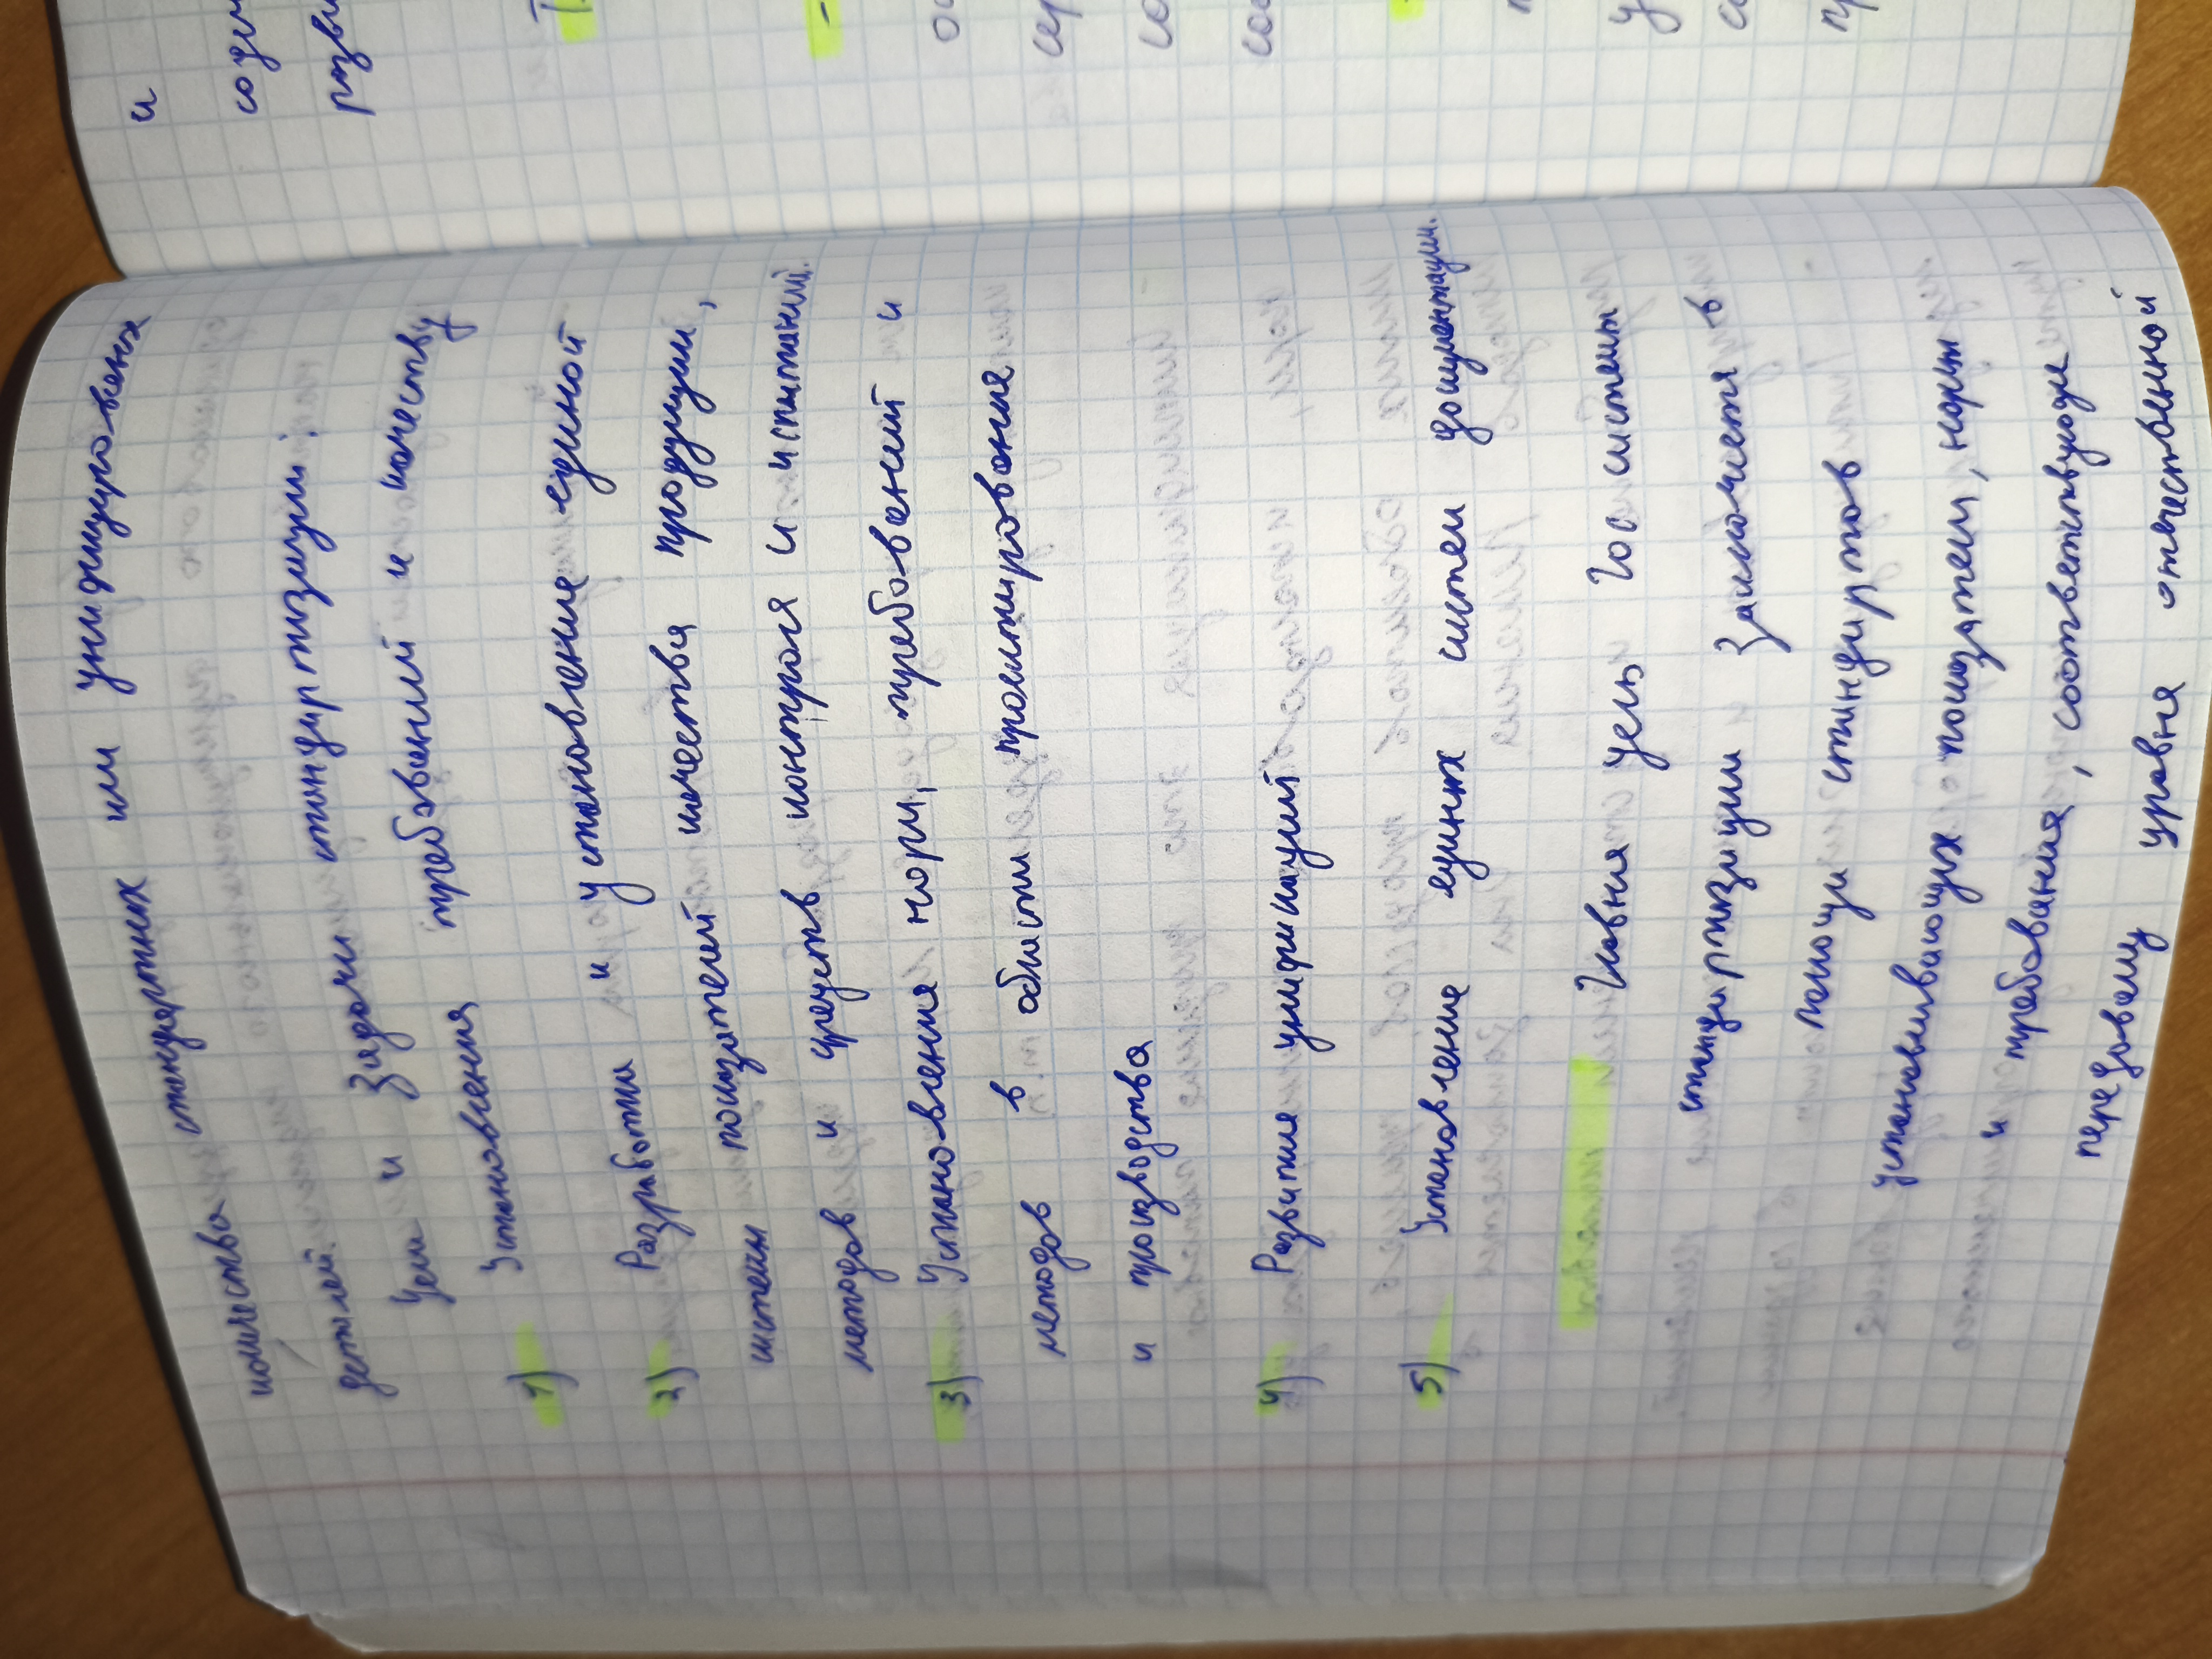 количества стандартных или унифицированых
деталей.
Цели и Задачи стандартизации:
1) Установления требований к качеству
2) Разработка и установление единой
систем показателей качества продукции,
методов и средств контроля и испытаний.
3) Установления норм, требований и
методов в области проектирования
и производства
4) Развития унификаций
5) Установление единых систем документации.
Главная цель Гос системы
стандартизации Заключается в
помощи стандартов
Устанавливающих показатели, нормы
и требования, соответствующие
передовому уровня отечественной
и